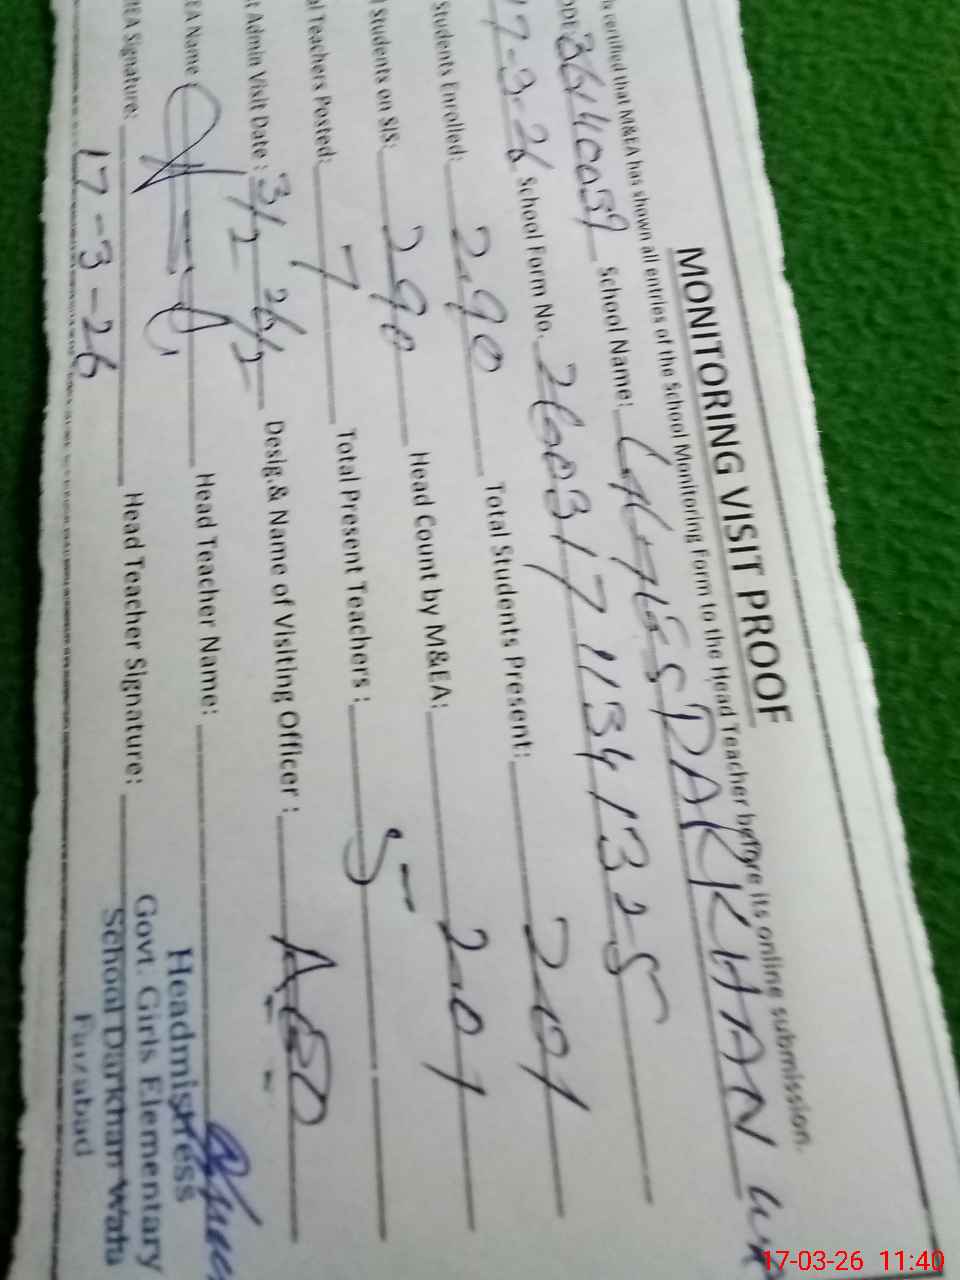 MONITORING VISIT PROOF
is certified that M&EA has shown all entries of the School Monitoring Form to the Head Teacher before its online submission.
School Name: DARKHAN
17-3-26 School Form No. 
Students Enrolled: 290 Total Students Present: 201
Students on SIS: 290 Head Count by M&EA: 201
Teachers Posted: 7 Total Present Teachers : 5
Admin Visit Date : Desig.& Name of Visiting Officer : AEO
EA Name Head Teacher Name:
EA Signature: Head Teacher Signature:
17-3-26
Headmistress
Govt. Girls Elementary
School Darkhan Wala
Faizabad
17-03-26 11:40